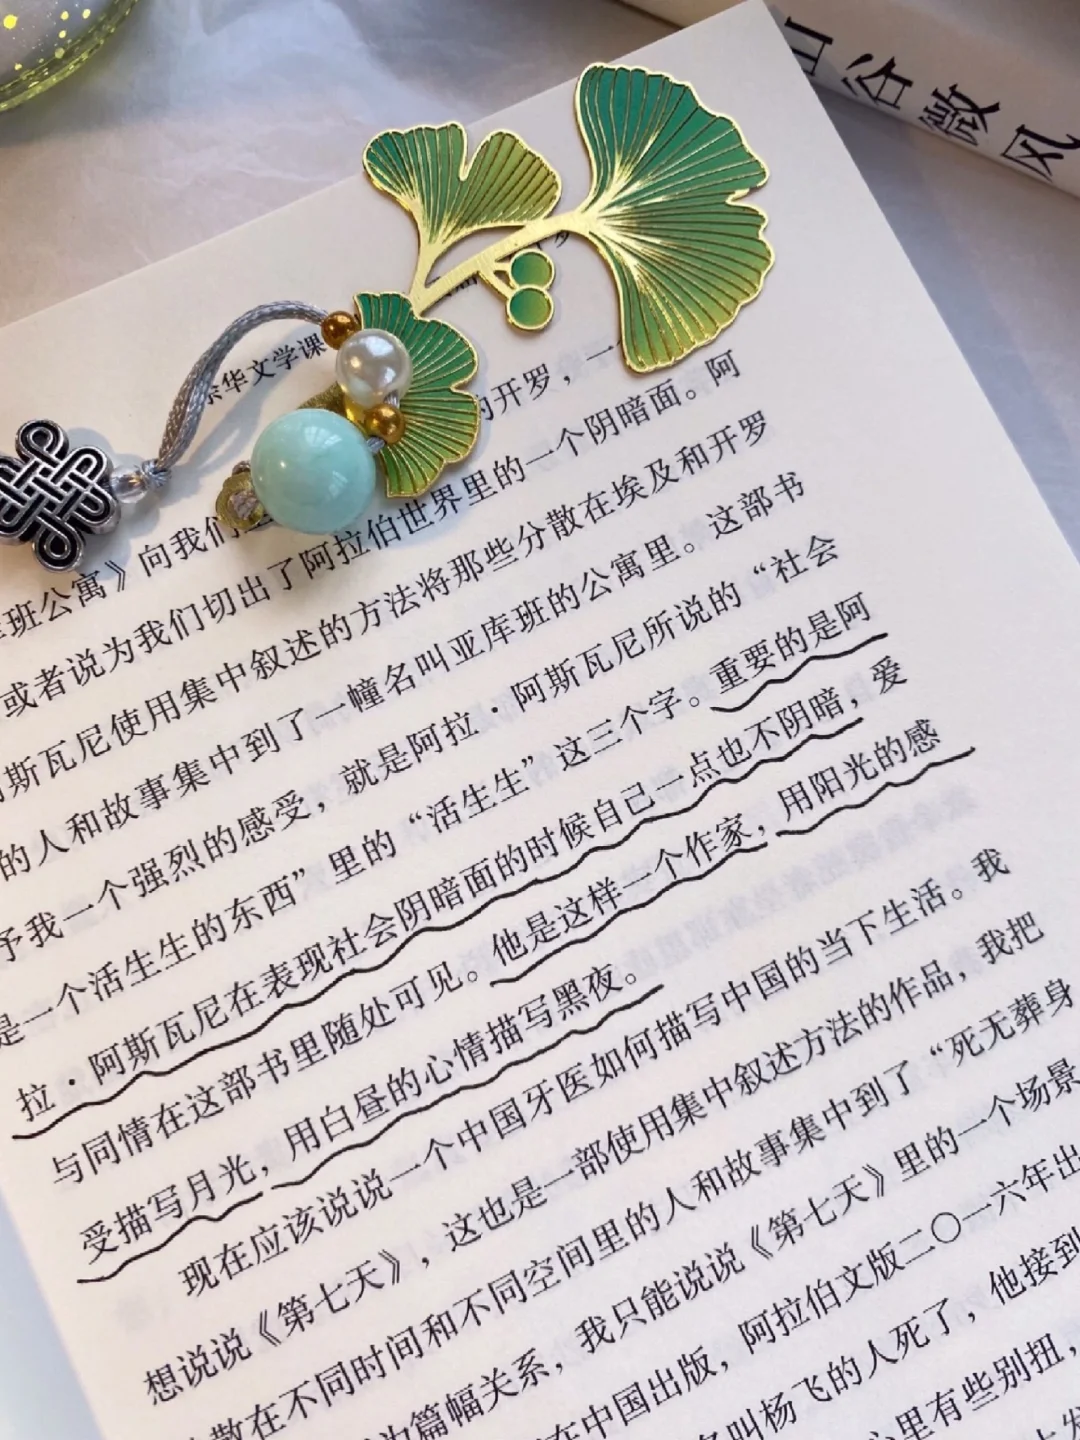 山谷微风
余华文学课
的开罗，一
班公寓》向我们
里的一个阴暗面。阿
或者说为我们切出了阿拉伯世界
斯瓦尼使用集中叙述的方法将那些分散在埃及和开罗
的人和故事集中到了一幢名叫亚库班的公寓里。这部书
予我一个强烈的感受，就是阿拉·阿斯瓦尼所说的“社会
是一个活生生的东西”里的“活生生”这三个字。重要的是阿
拉·阿斯瓦尼在表现社会阴暗面的时候自己一点也不阴暗，爱
与同情在这部书里随处可见。他是这样一个作家，用阳光的感
受描写月光，用白昼的心情描写黑夜。
现在应该说说一个中国牙医如何描写中国的当下生活。我
想说说《第七天》，这也是一部使用集中叙述方法的作品，我把
散在不同时间和不同空间里的人和故事集中到了“死无葬身
为篇幅关系，我只能说说《第七天》里的一个场景
在中国出版，阿拉伯文版二〇一六年出
名叫杨飞的人死了，他接到
心里有些别扭，